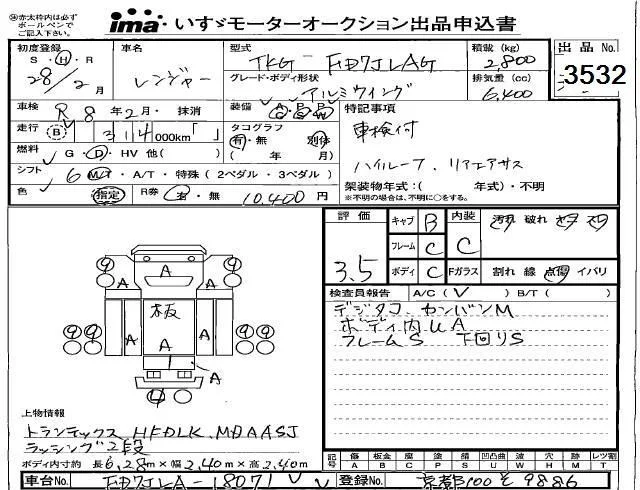 ※赤太枠内は必ず
ボールペンで
ご記入下さい。
ima・いすゞモーターオークション出品申込書
初度登録 S・H・R 28/2月
車名 レンジャー
型式 TKG-FD7JLAG
積載(kg) 2,800
出品No. 3532
グレード・ボディ形状 アルミウイング
排気量(cc) 6,400
車検 R 8年2月・抹消
装備
特記事項
車検付
走行 314 000km「 」
タコグラフ 有・無 別体
( 年 月)
ハイルーフ、リアエアサス
燃料 G・D・HV 他( )
シフト 6 M/T・A/T・特殊(2ペダル・3ペダル)
架装物年式:( 年式)・不明
※不明の場合は、不明に○をする。
色 指定 R券 有・無 10,400円
評価 3.5
キャブ B
フレーム C
ボディ C
内装 C
Fガラス
汚れ 破れ
割れ 線 点傷 イバリ
検査員報告 A/C( ✓ ) B/T( )
デジタコ、カンバンM
ボディ内UA
フレームS 下回りS
⑨ A ⑨
A A A
板
⑨ ⑨ ⑨ ⑨
1 A
A
上物情報
トランテックス HFDLK、MDAASJ
ラッシング2段
ボディ内寸約 長6,28m×幅2,40m×高2,40m
記号 傷 板金 座 塗 錆 凹凸曲 波 穴 大 レツ割
A B C P S U W H M T
車台No. FD7JLA-18071
登録No. 京都100そ9886